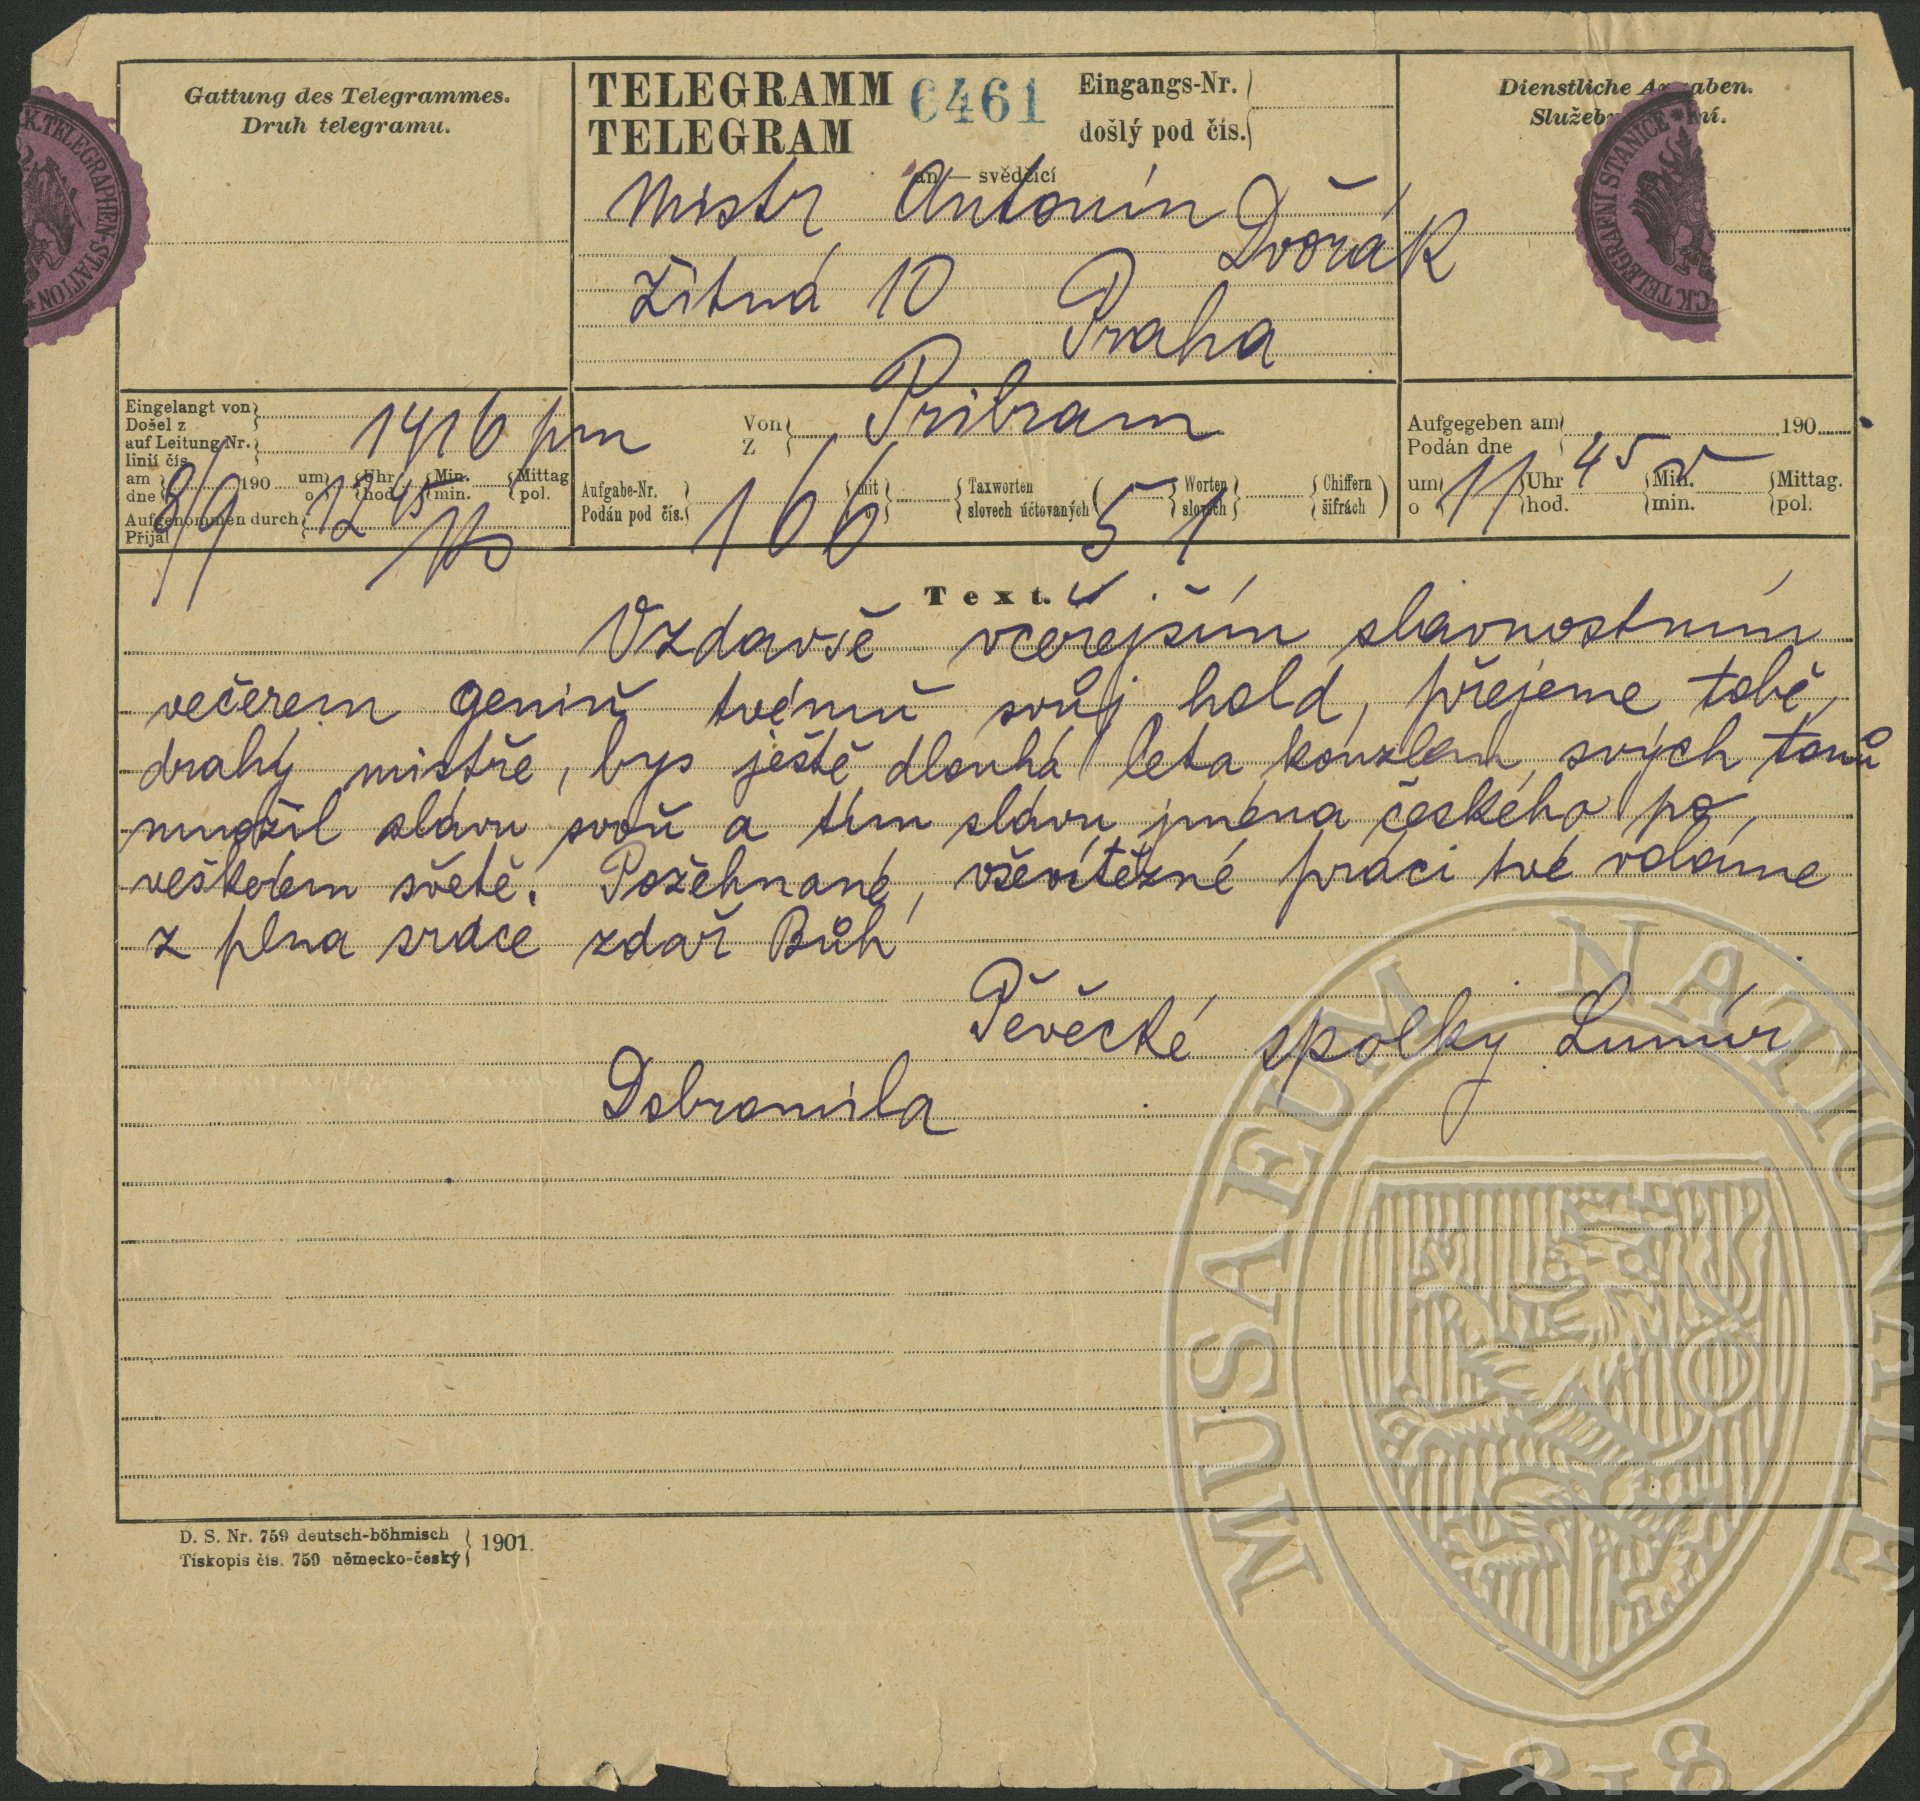 Gattung des Telegrammes.
Druh telegramu.
TELEGRAMM
TELEGRAM
6461
Eingangs-Nr.
došlý pod čís.
Dienstliche Angaben.
K. TELEGRAPHEN-STATION
CK TELEGRAFNÍ STANICE
an — svědčící
Mistr Antonín Dvořák
Žitná 10 Praha
Eingelangt von
Došel z
auf Leitung Nr.
linií čís.
1416 pm
am 190 um Uhr Min. Mittag
dne o hod. min. pol.
8/9 12 45
Aufgenommen durch
Přijal
Von
Z
Pribram
Aufgabe-Nr. mit Taxworten Worten Chiffern
Podán pod čís. slovech účtovaných slovech šifrách
166 51
Aufgegeben am 190
Podán dne
um 11 Uhr 45 Min. Mittag.
o hod. min. pol.
Text.
Vzdavše včerejším slavnostním
večerem geniu tvému svůj hold, přejeme tobě,
drahý mistře, bys ještě dlouhá leta kouzlem svých tonů
množil slávu svou a tím slávu jména českého po
veškerém světě. Požehnané, vševítězné práci tvé voláme
z plna srdce zdař Bůh
Pěvecké spolky Lumír
Dobromila
D. S. Nr. 759 deutsch-böhmisch
Tiskopis čís. 759 německo-český
1901.
MUSAEUM NATIONALE
1818